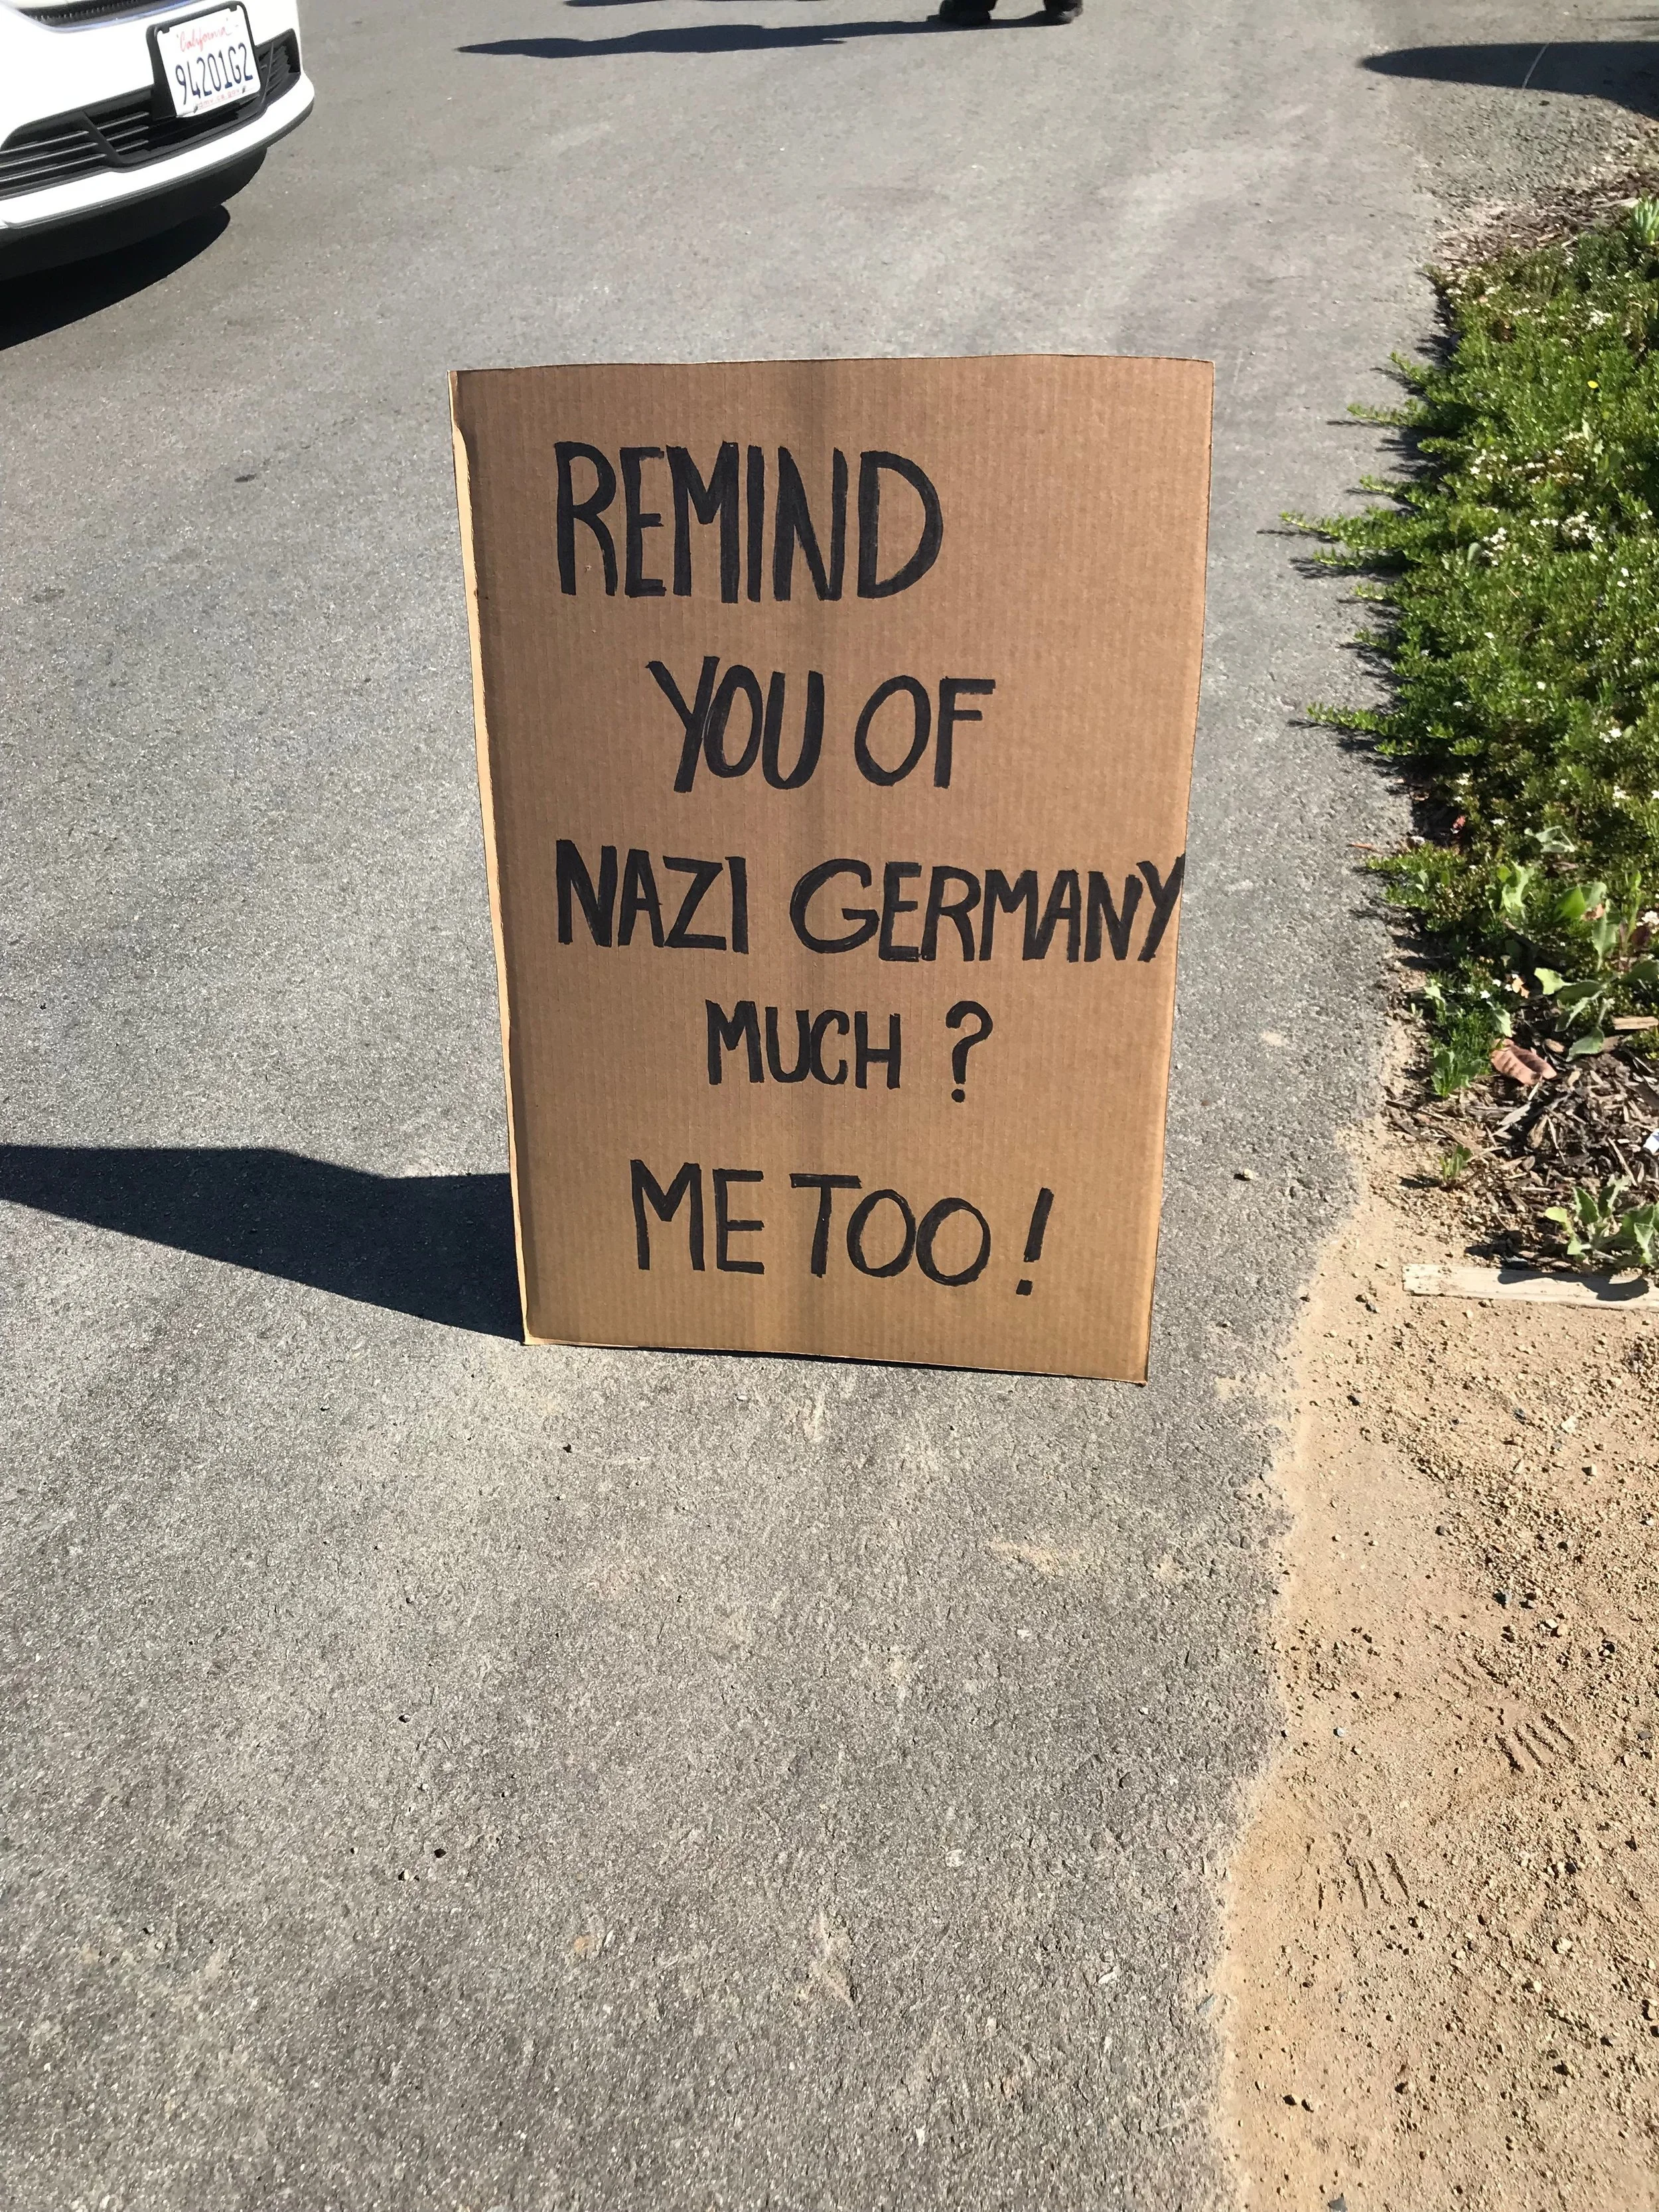 California
94201G2
REMIND
YOU OF
NAZI GERMANY
MUCH ?
ME TOO !